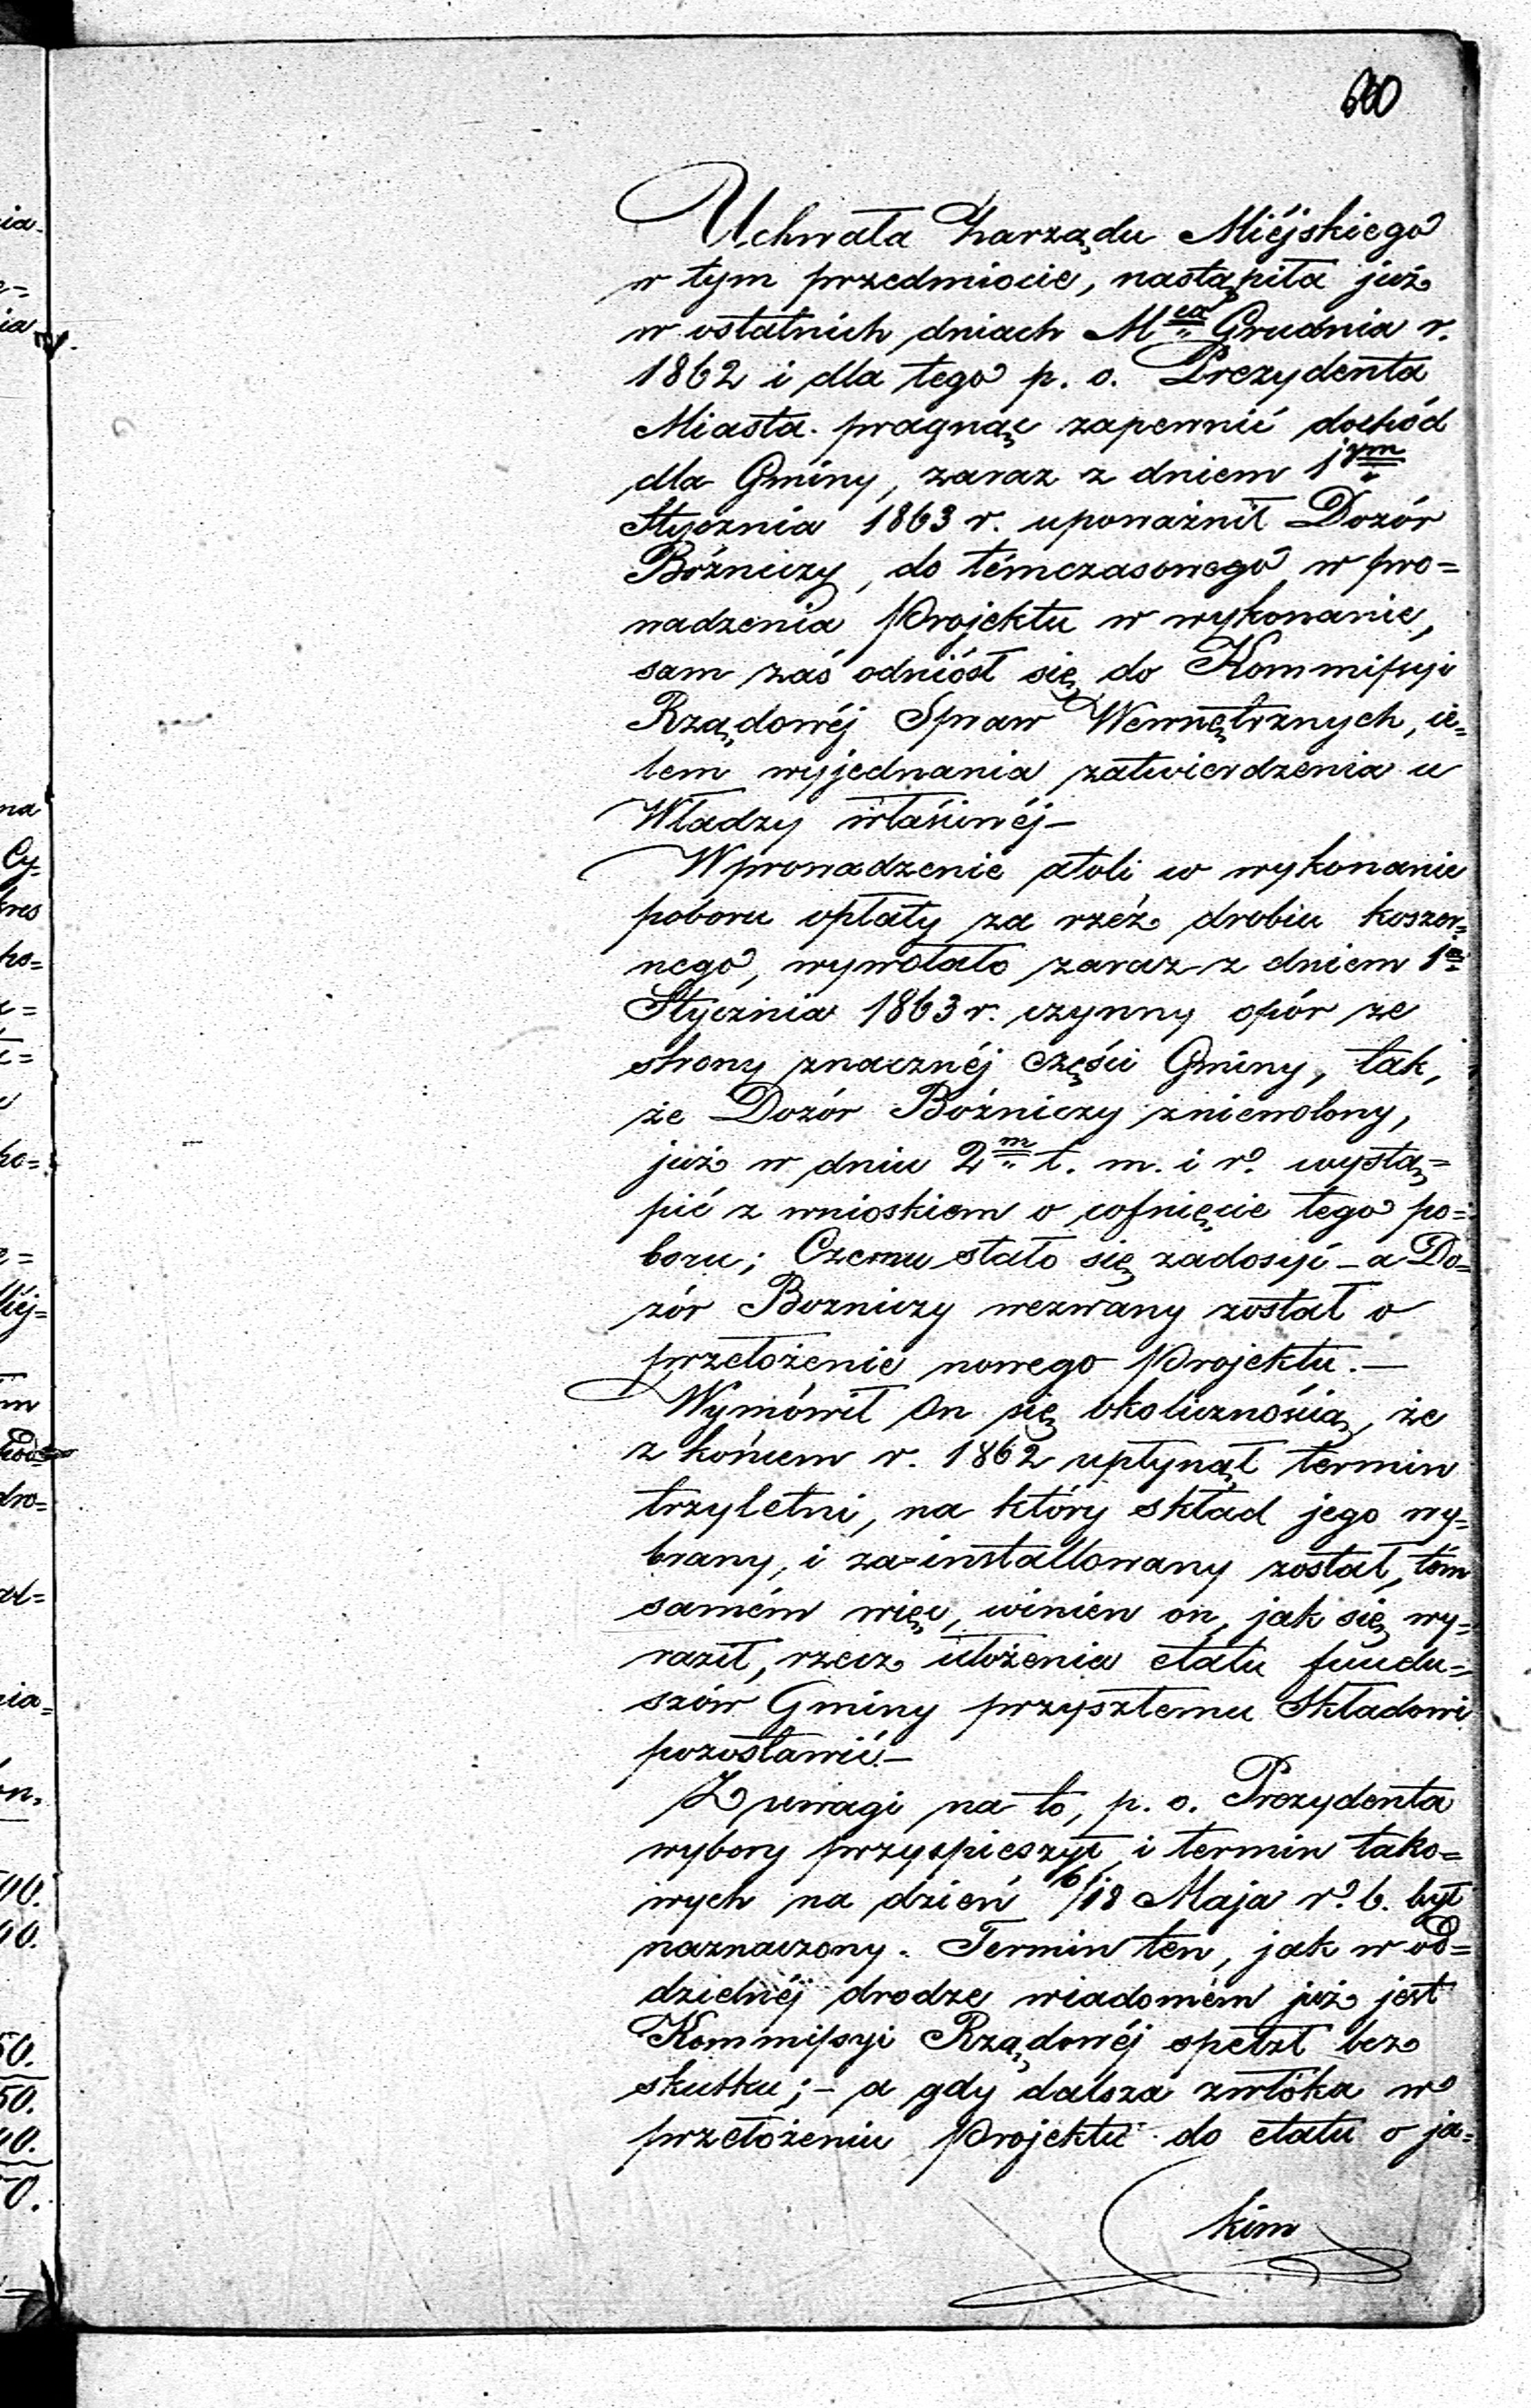 660
Uchwała Zarządu Miéjskiego
w tym przedmiocie, nastąpiła już
w ostatnich dniach Mca Grudnia r.
1862 i dla tego p. o. Prezydenta
Miasta pragnąc zapewnić dochód
dla Gminy, zaraz z dniem 1ym
Stycznia 1863 r. upoważnił Dozór
Bóżniczy, do témczasowego w pro=
wadzenia Projektu w wykonanie,
sam zaś odniósł się do Kommissyi
Rządowéj Spraw Wewnętrznych, ce=
lem wyjednania zatwierdzenia u
Władzy właściwéj —
Wprowadzenie atoli w wykonanie
poboru opłaty za rzeź drobiu koszer=
nego, wywołało zaraz z dniem 1a
Stycznia 1863 r. czynny opór ze
strony znacznéj części Gminy, tak,
że Dozór Bóżniczy zniewolony,
już w dniu 2m t. m. i r. wystą=
pić z wnioskiem o cofnięcie tego po=
boru; Czemu stało się zadosyć — a Do=
zór Bozniczy wezwany został o
przełożenie nowego Projektu. —
Wymówił On się okolicznością, że
z końcem r. 1862 upłynął termin
trzyletni, na który skład jego wy=
brany, i za=installowany został, tém
samém więc, winien on, jak się wy=
raził, rzecz ułożenia etatu fundu=
szów Gminy przyszłemu Składowi
pozostawić. —
Z uwagi na to, p. o. Prezydenta
wybory przyspieszył i termin tako=
wych na dzień 6/18 Maja r. b. był
naznaczony. Termin ten, jak w od=
dzielnéj drodze wiadomém już jest
Kommissyi Rządowéj spełzł bez
skutku; — a gdy dalsza zwłóka w
przełożeniu Projektu do etatu o ja=
kim